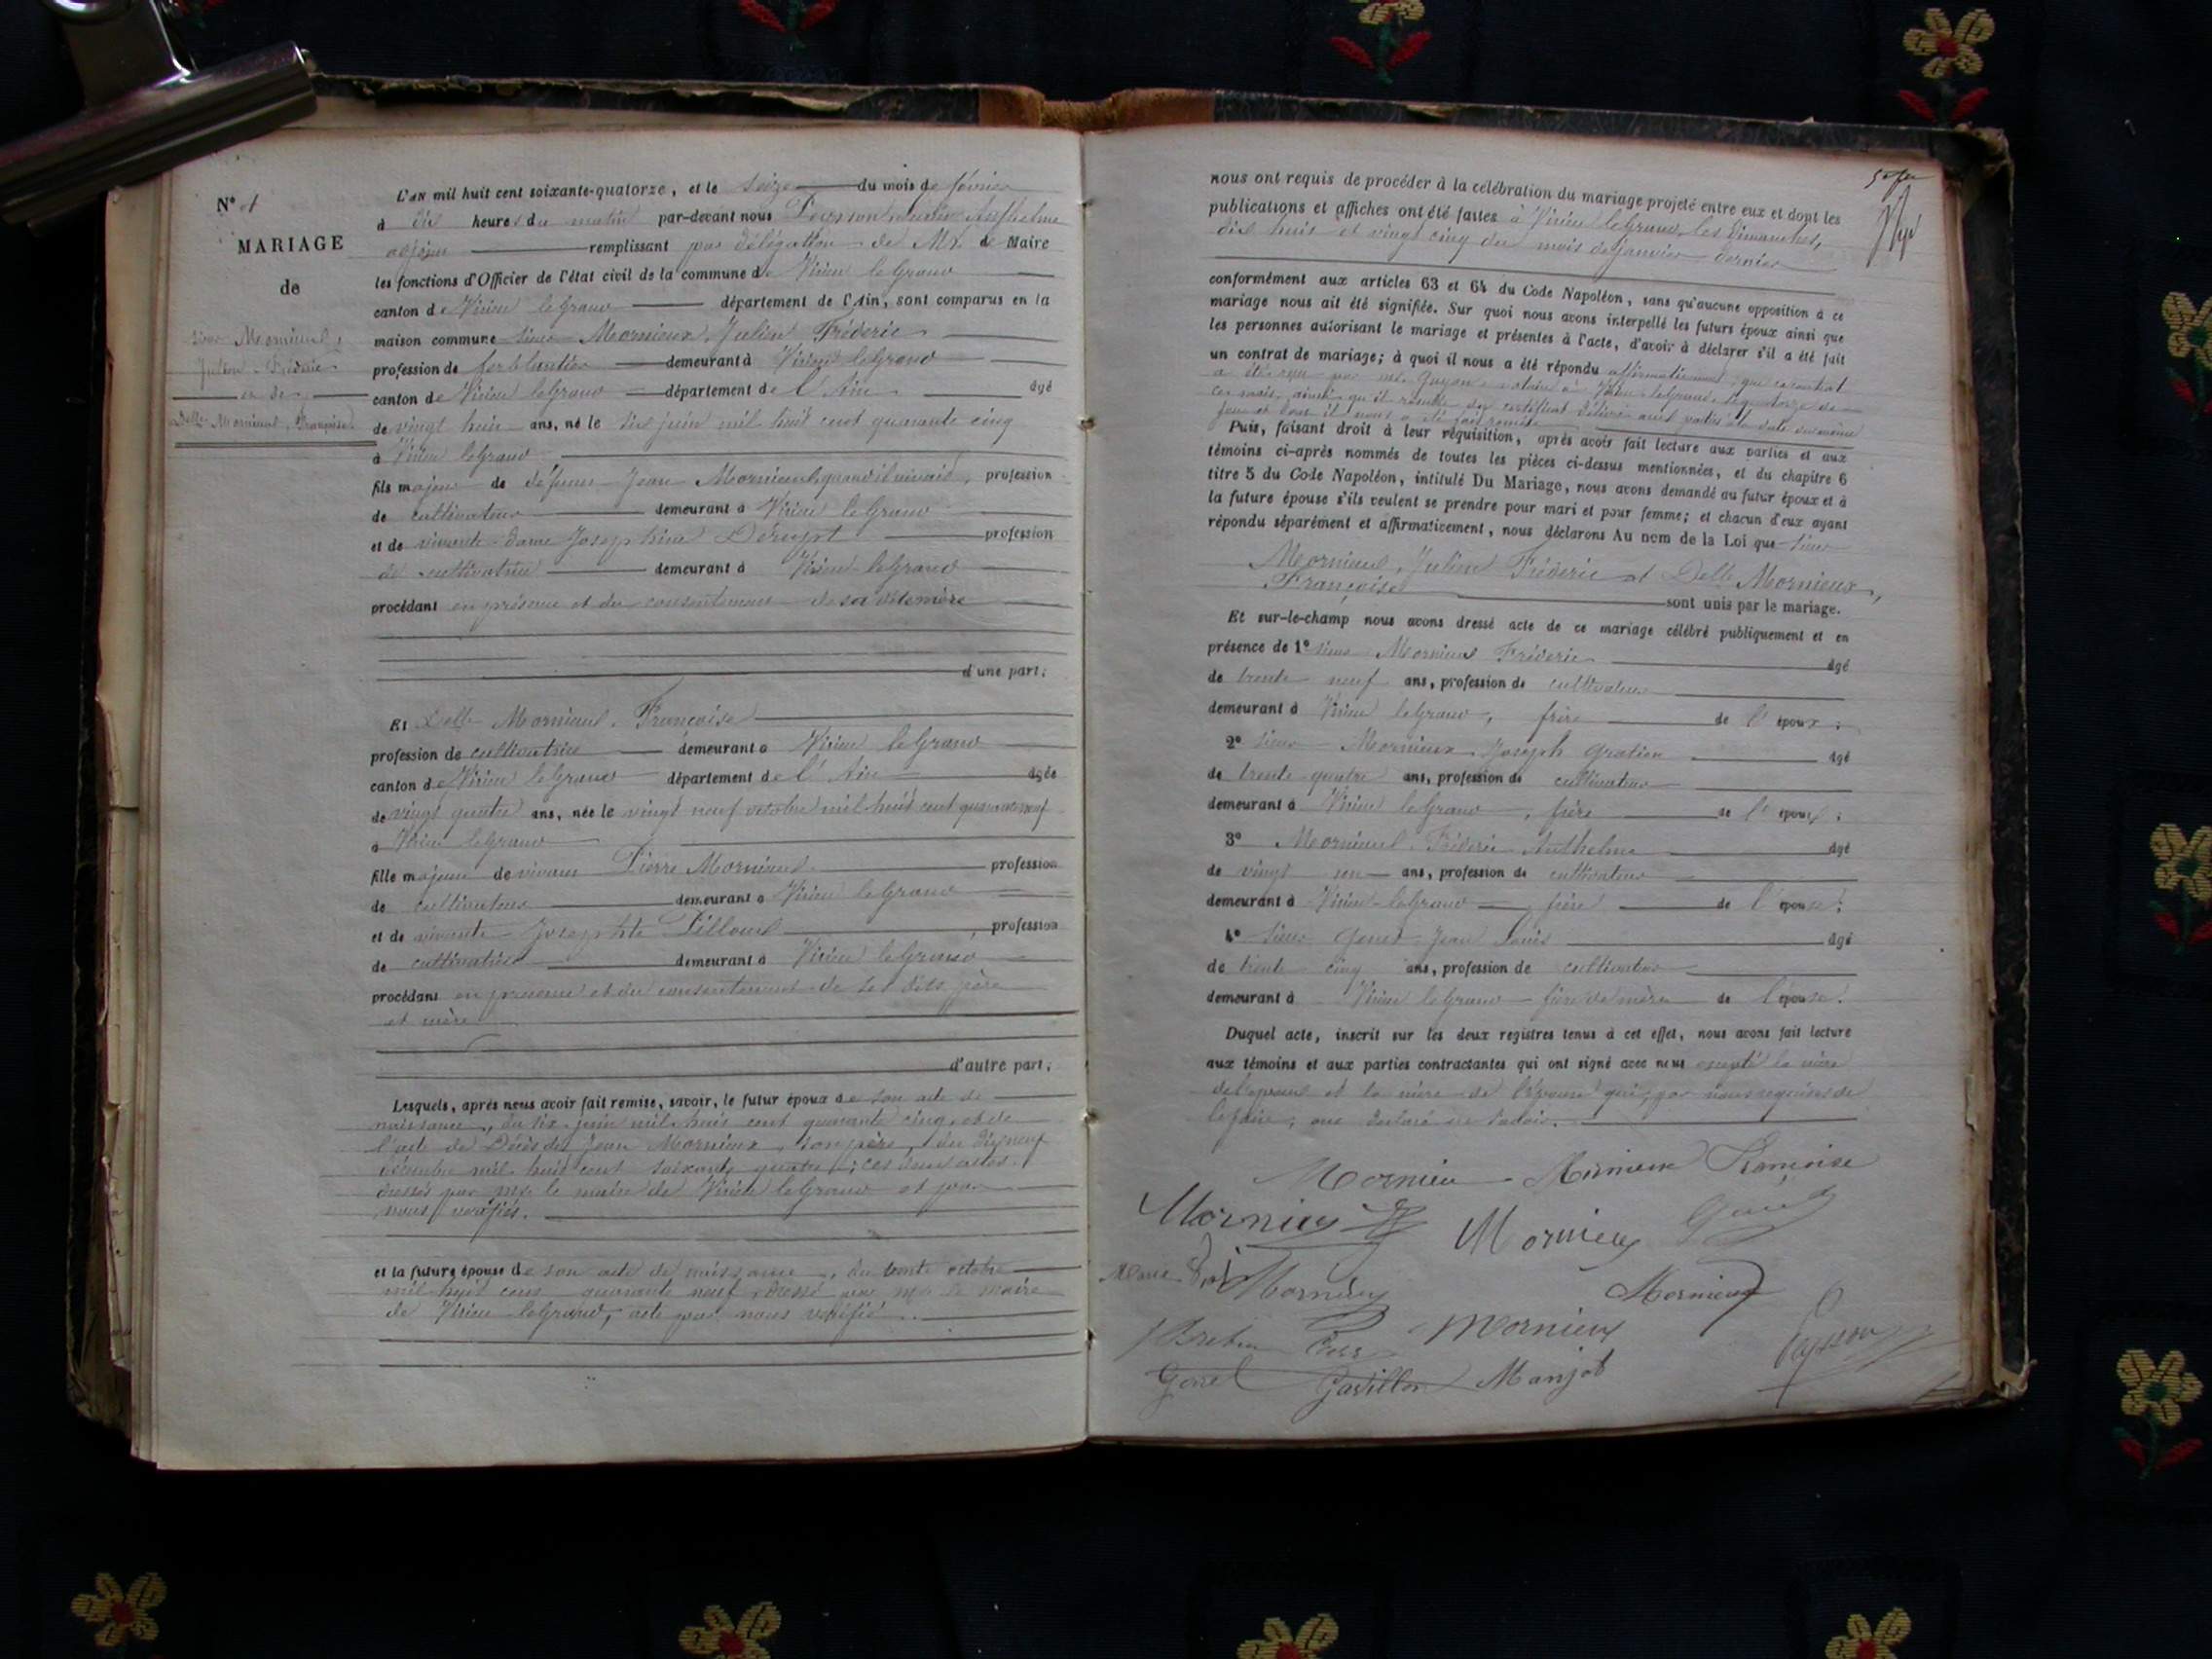 N° 1
MARIAGE
de
sieur Mornieux,
Julien Frédéric
et de
Delle Mornieux, Françoise
L'an mil huit cent soixante-quatorze, et le seize du mois de février
à dix heures du matin par-devant nous Anthelme
adjoint remplissant par délégation de Mr. le Maire
les fonctions d'Officier de l'état civil de la commune de Virieu leGrand
canton de Virieu leGrand département de l'Ain, sont comparus en la
maison commune sieur Mornieux, Julien Frédéric
profession de ferblantier demeurant à Virieu leGrand
canton de Virieu leGrand département de l'Ain âgé
de vingt huit ans, né le six juin mil huit cent quarante cinq
à Virieu leGrand
fils majeur de défunt Jean Mornieux quand il vivait, profession
de cultivateur demeurant à Virieu leGrand
et de vivante dame Josephine profession
de cultivatrice demeurant à Virieu leGrand
procédant en présence et du consentement de sa dite mère
d'une part;
Et Delle Mornieux, Françoise
profession de cultivatrice demeurant à Virieu leGrand
canton de Virieu leGrand département de l'Ain âgée
de vingt quatre ans, née le vingt neuf octobre mil huit cent quarante neuf
à Virieu leGrand
fille majeure de vivant Pierre Mornieux profession
de cultivateur demeurant à Virieu leGrand
et de vivante Josephte profession
de cultivatrice demeurant à Virieu leGrand
procédant en présence et du consentement de ses dits père
et mère
d'autre part;
Lesquels, après nous avoir fait remise, savoir, le futur époux de son acte de
naissance, du six juin mil huit cent quarante cinq, et de
l'acte de Décès de Jean Mornieux, son père, du dix neuf
décembre mil huit cent soixante quatre; ces deux actes
dressés par Mr. le maire de Virieu leGrand et par
nous vérifiés.
et la future épouse de son acte de naissance, du trente octobre
mil huit cent quarante neuf, dressé par Mr. le maire
de Virieu leGrand, acte par nous vérifié.
nous ont requis de procéder à la célébration du mariage projeté entre eux et dont les
publications et affiches ont été faites à Virieu leGrand les Dimanches,
dix huit et vingt cinq du mois de janvier dernier
conformément aux articles 63 et 64 du Code Napoléon, sans qu'aucune opposition à ce
mariage nous ait été signifiée. Sur quoi nous avons interpellé les futurs époux ainsi que
les personnes autorisant le mariage et présentes à l'acte, d'avoir à déclarer s'il a été fait
un contrat de mariage; à quoi il nous a été répondu affirmativement, que ce contrat
a été reçu par me. Guyon notaire à Virieu leGrand, le quatorze de
ce mois, ainsi qu'il résulte du certificat délivré aux parties à la date du même
jour et dont il nous a été fait remise
Puis, faisant droit à leur réquisition, après avoir fait lecture aux parties et aux
témoins ci-après nommés de toutes les pièces ci-dessus mentionnées, et du chapitre 6
titre 5 du Code Napoléon, intitulé Du Mariage, nous avons demandé au futur époux et à
la future épouse s'ils veulent se prendre pour mari et pour femme; et chacun d'eux ayant
répondu séparément et affirmativement, nous déclarons Au nom de la Loi que sieur
Mornieux, Julien Frédéric et Delle Mornieux,
Françoise sont unis par le mariage.
Et sur-le-champ nous avons dressé acte de ce mariage célébré publiquement et en
présence de 1° sieur Mornieux Frédéric âgé
de trente neuf ans, profession de cultivateur
demeurant à Virieu leGrand, frère de l'époux;
2° sieur Mornieux, Joseph Gratien âgé
de trente quatre ans, profession de cultivateur
demeurant à Virieu leGrand, frère de l'époux;
3° Mornieux Frédéric Anthelme âgé
de vingt un ans, profession de cultivateur
demeurant à Virieu leGrand frère de l'épouse;
4° sieur Genet Jean Louis âgé
de trente cinq ans, profession de cultivateur
demeurant à Virieu leGrand de l'épouse.
Duquel acte, inscrit sur les deux registres tenus à cet effet, nous avons fait lecture
aux témoins et aux parties contractantes qui ont signé avec nous excepté la mère
de l'époux et la mère de l'épouse qui, par nous requises de
le faire, ont déclaré ne savoir.
Mornieu Mornieux Françoise
Mornieux Mornieux
Mornieux Mornieux
Mornieux
Genet Gavillon Manjot